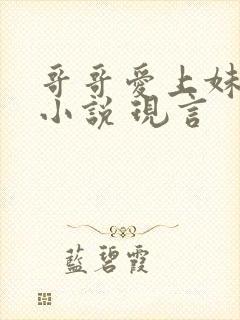 哥哥愛上妹
小說現言
藍碧霞